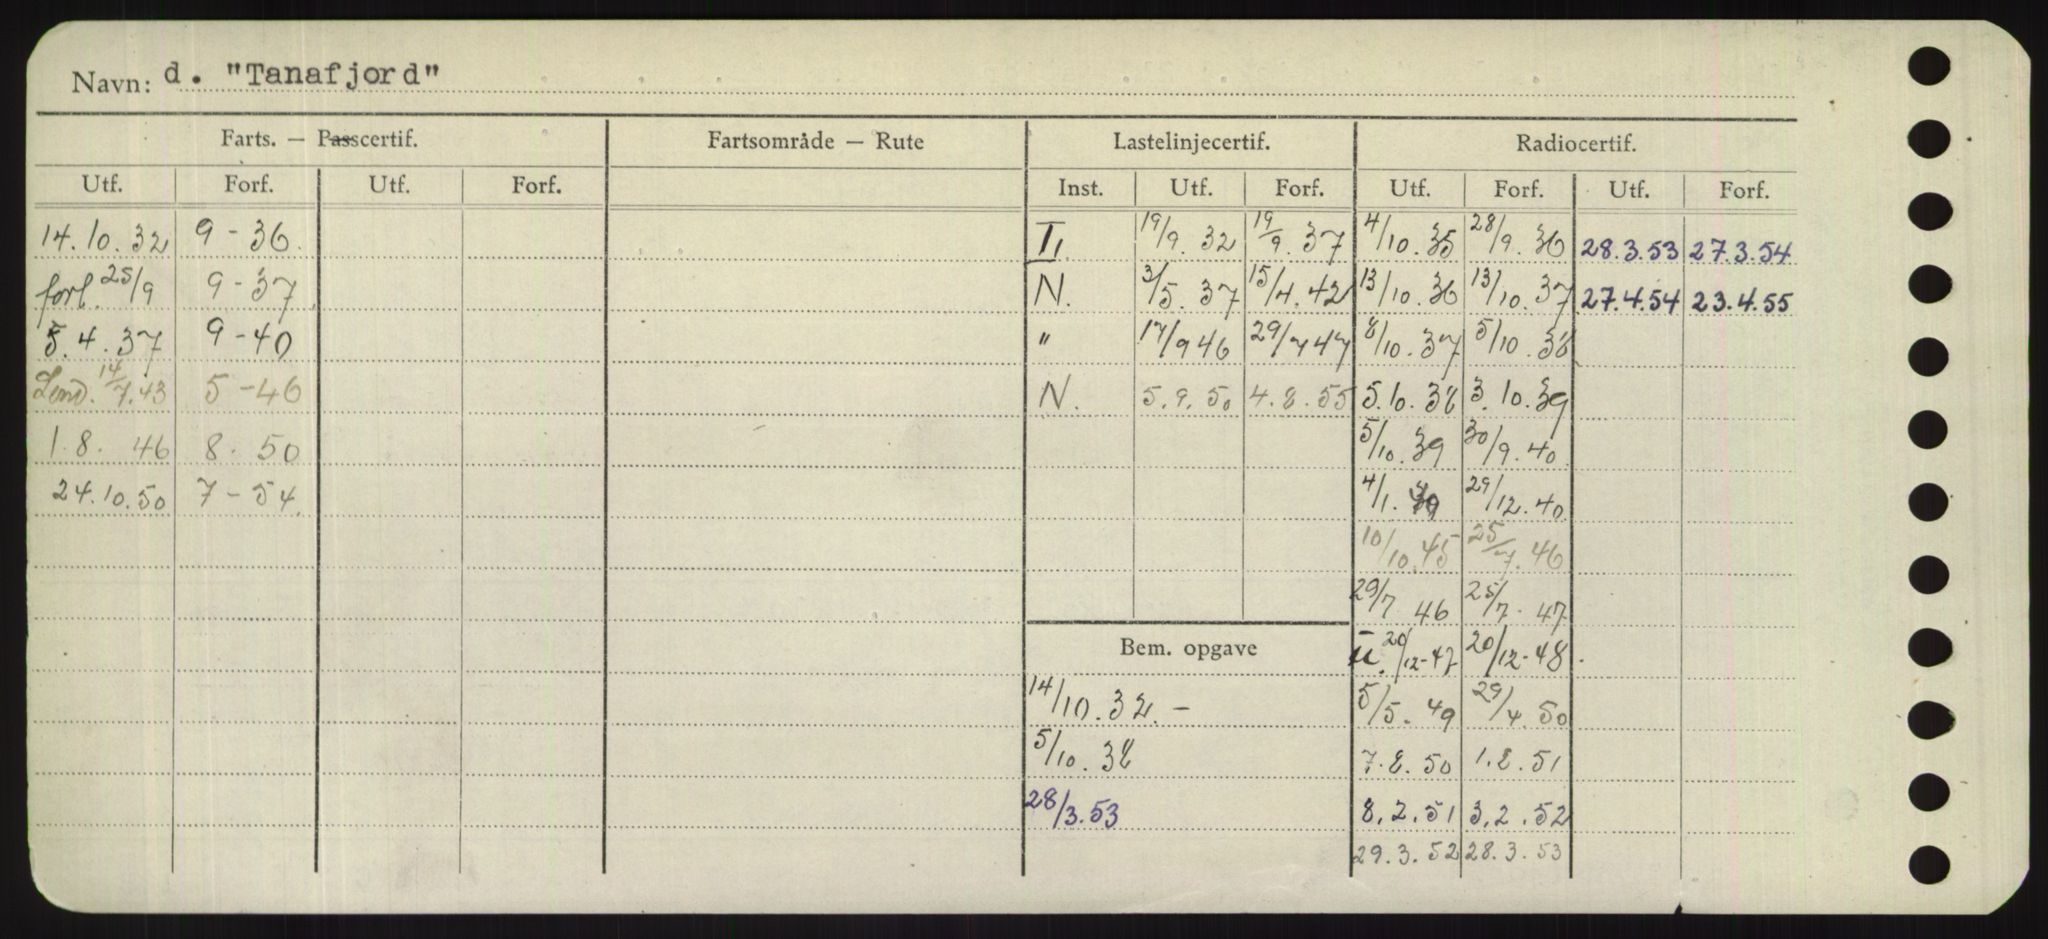 Navn: d. "Tanafjord"
Farts. — Passcertif. Fartsområde — Rute Lastelinjecertif. Radiocertif.
Utf. Forf. Utf. Forf. Inst. Utf. Forf. Utf. Forf. Utf. Forf.
14.10.32 9-36. 19/9.32 19/9.37 4/10.35 28/9.36 28.3.53 27.3.54
forl. 25/9 9-37 N. 3/5.37 15/4.42 13/10.36 13/10.37 27.4.54 23.4.55
5.4.37 9-40 " 17/9 46 29/7 47 8/10.37 5/10.38
14/7.43 5-46 N. 5.9.50 4.8.55 5.10.38 3.10.39
1.8.46 8.50 5/10.39 30/9.40
24.10.50 7-54. 4/1. 29/12.40
10/10.45 25/7.46
29/7 46 25/7.47
Bem. opgave 20/12-47 20/12-48.
14/10.32.- 5/5.49 29/4.50
5/10.38 7.8.50 1.8.51
28/3.53 8.2.51 3.2.52
29.3.52 28.3.53